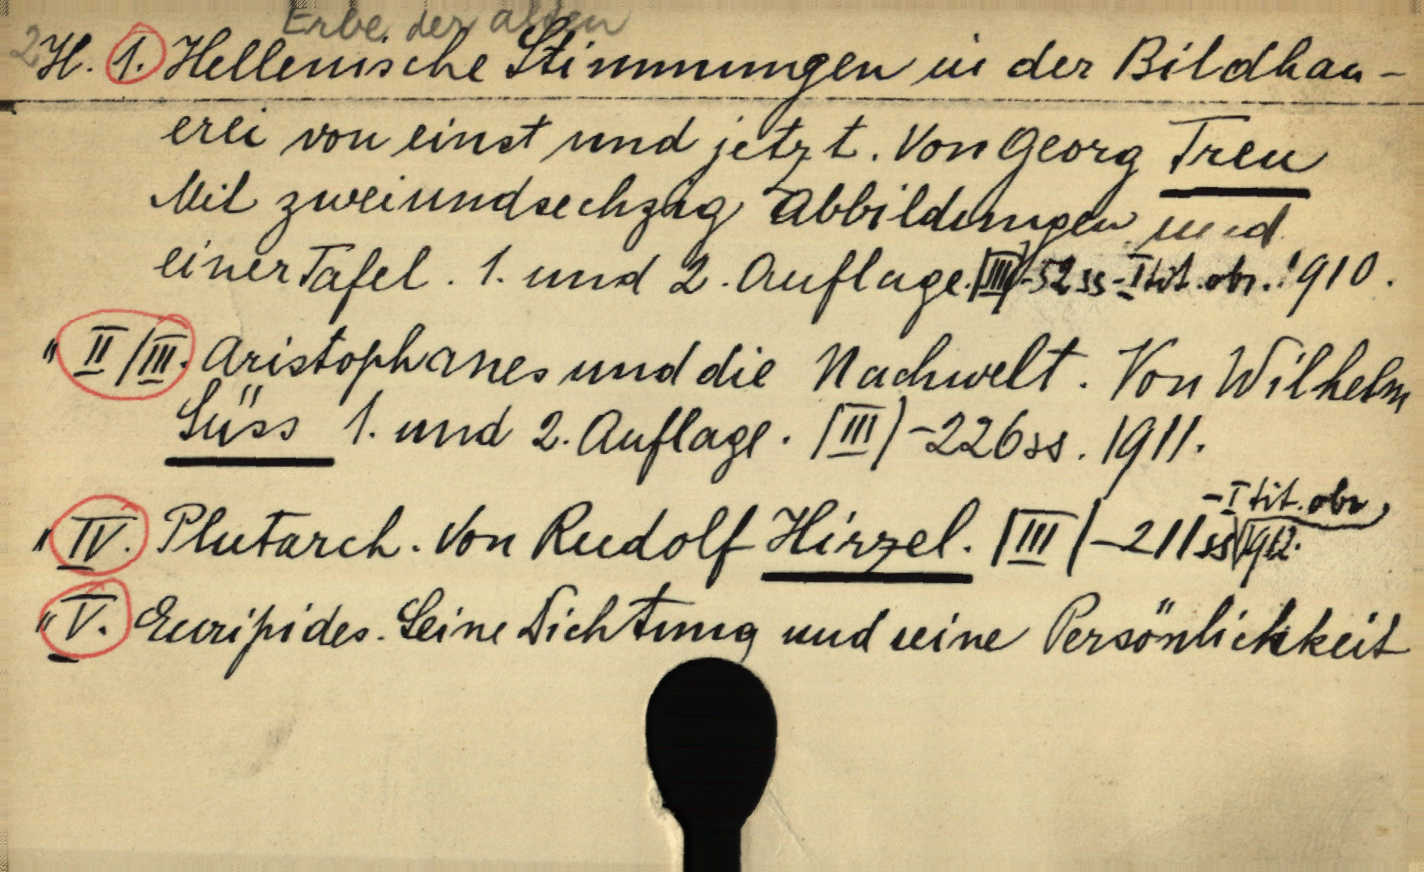 Erbe der alten
2 H. 1. Hellenische Stimmungen in der Bildhau-
erei von einst und jetzt. Von Georg Treu
Mit zweiundsechzig Abbildungen und
einer Tafel. 1. und 2. Auflage. |III|-52 ss-I tit. obr. 1910.
" II/III. Aristophanes und die Nachwelt. Von Wilhelm
Süss 1. und 2. Auflage. |III|-226 ss. 1911.
-I tit. obr,
" IV. Plutarch. Von Rudolf Hirzel. |III|-211 ss 1912.
" V. Euripides. Seine Dichtung und seine Persönlichkeit